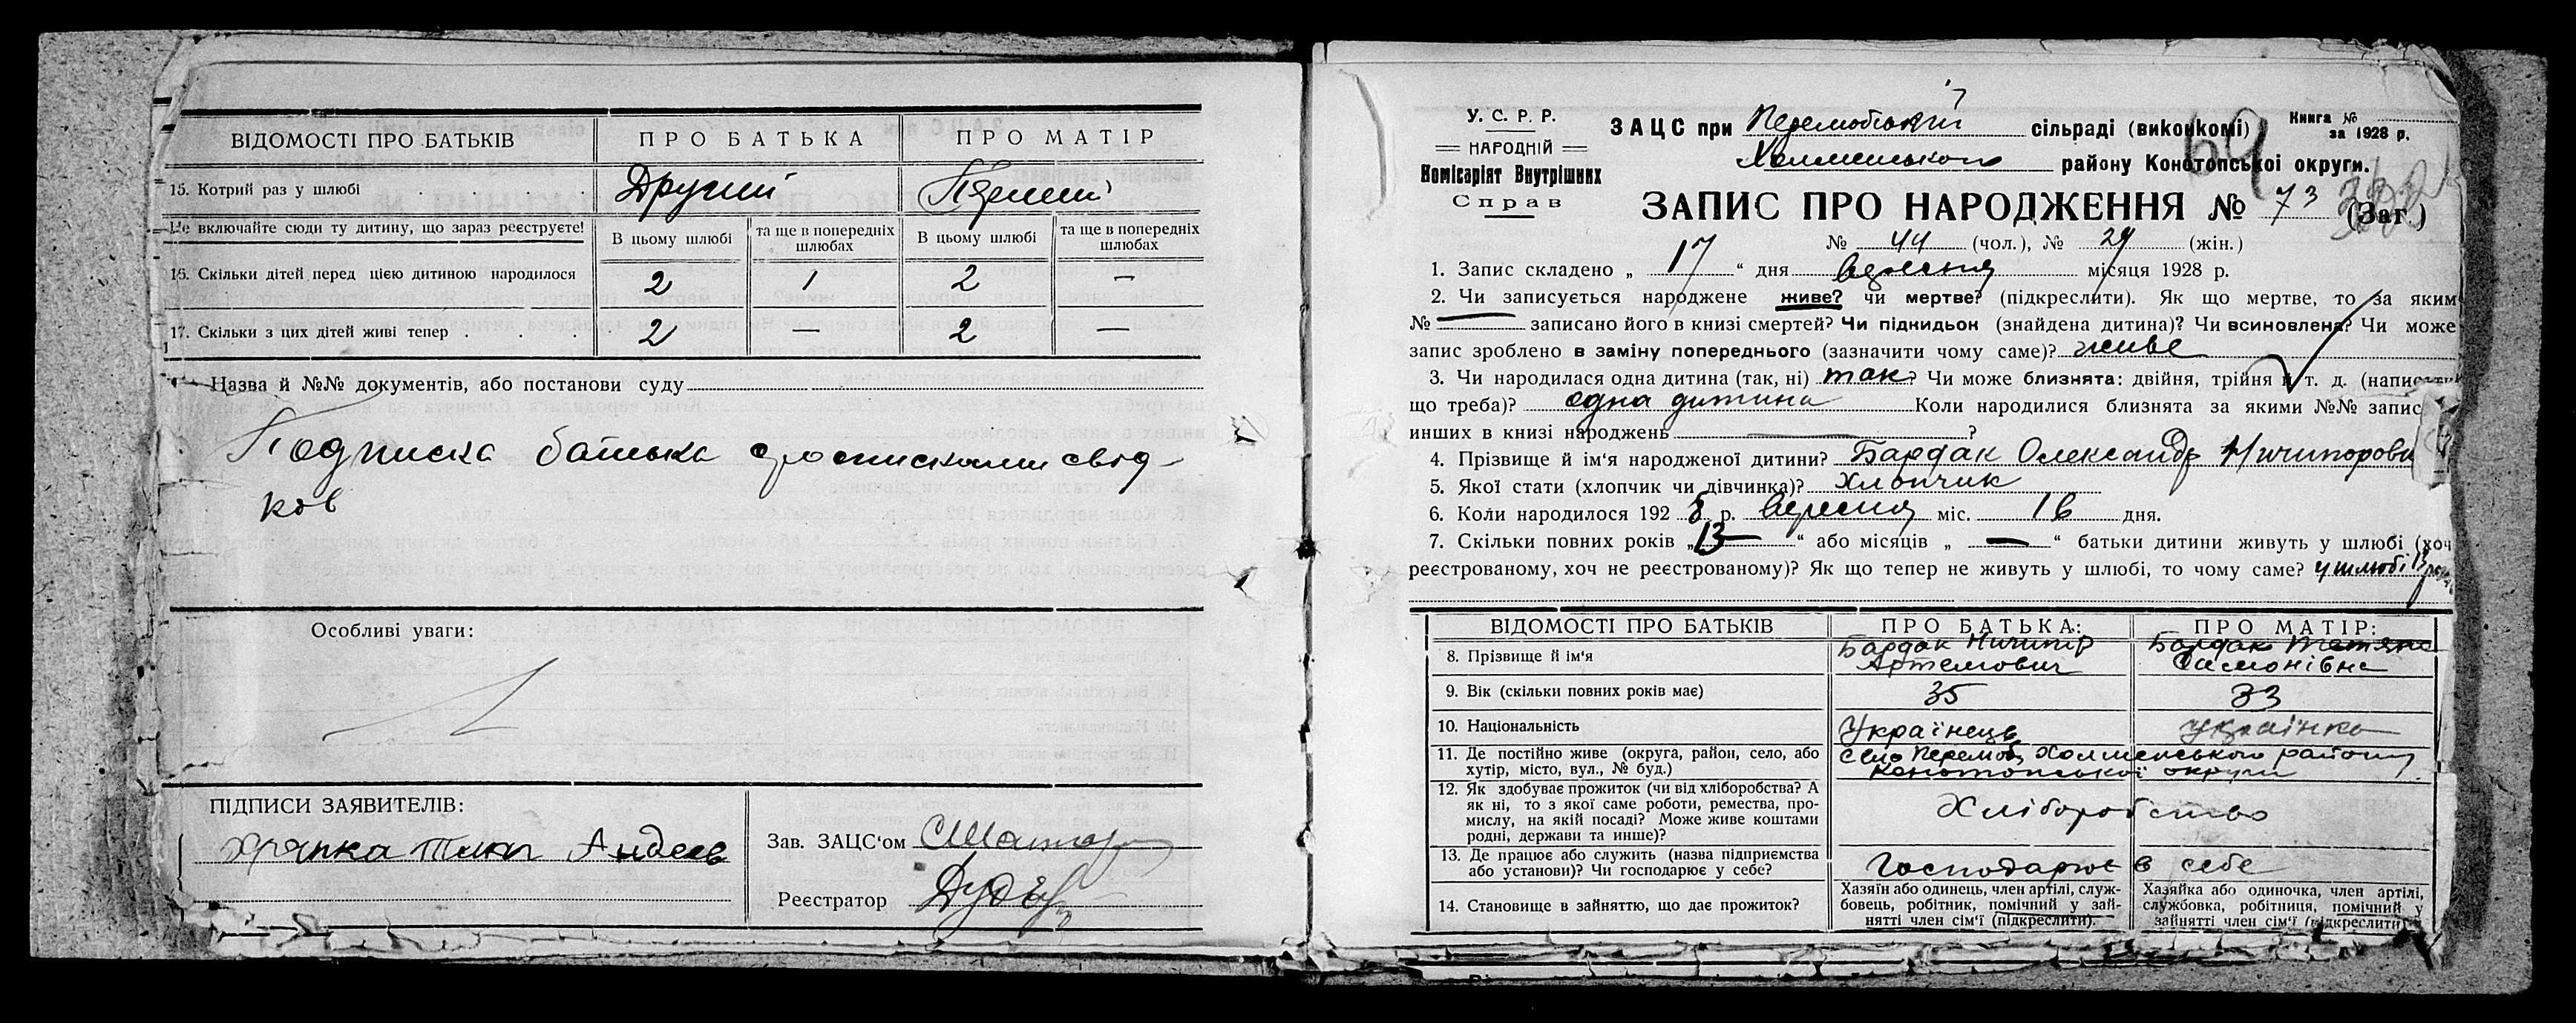 ВІДОМОСТІ ПРО БАТЬКІВ
ПРО БАТЬКА
ПРО МАТІР
15. Котрий раз у шлюбі
Другий
Перший
Не включайте сюди ту дитину, що зараз реєструєте!
В цьому шлюбі
та ще в попередніх шлюбах
В цьому шлюбі
та ще в попередніх шлюбах
16. Скільки дітей перед цією дитиною народилося
2 1 2 —
17. Скільки з цих дітей живі тепер
2 — 2 —
Назва й №№ документів, або постанови суду
Подписка батька
ков
Особливі уваги:
ПІДПИСИ ЗАЯВИТЕЛІВ:
Зав. ЗАЦС'ом
Реєстратор
У. С. Р. Р.
НАРОДНІЙ
Комісаріят Внутрішних
Справ
ЗАЦС при сільраді (виконкомі)
Книга №
за 1928 р.
69
району Конотопської округи.
ЗАПИС ПРО НАРОДЖЕННЯ № 73 (Заг.)
№ 44 (чол.), № 29 (жін.)
1. Запис складено „ 17 “ дня вересня місяця 1928 р.
2. Чи записується народжене живе? чи мертве? (підкреслити). Як що мертве, то за яким
№ — записано його в книзі смертей? Чи підкидьок (знайдена дитина)? Чи всиновлена? Чи може
запис зроблено в заміну попереднього (зазначити чому саме)? живе
3. Чи народилася одна дитина (так, ні) так? Чи може близнята: двійня, трійня й т. д. (написати
що треба)? одна дитина Коли народилися близнята за якими №№ запис
инших в книзі народжень — ?
4. Прізвище й ім'я народженої дитини? Бардак Олександр Ничипорови
5. Якої стати (хлопчик чи дівчинка)? Хлопчик
6. Коли народилось 1928 р. вересня міс. 16 дня.
7. Скільки повних років „13“ або місяців „ — “ батьки дитини живуть у шлюбі (хоч
реєстрованому, хоч не реєстрованому)? Як що тепер не живуть у шлюбі, то чому саме? у шлюбі 13
ВІДОМОСТІ ПРО БАТЬКІВ
ПРО БАТЬКА:
ПРО МАТІР:
8. Прізвище й ім'я
Бардак Ничипір
Артемович
Бардак Тетяна
Самонівна
9. Вік (скільки повних років має)
35
33
10. Національність
Українець
українка
11. Де постійно живе (округа, район, село, або
хутір, місто, вул., № буд.)
Село Холменського району
Конотопської округи
12. Як здобуває прожиток (чи від хліборобства? А
як ні, то з якої саме роботи, ремества, про-
мислу, на якій посаді? Може живе коштами
родні, держави та инше)?
Хліборобство
13. Де працює або служить (назва підприємства
або установи)? Чи господарює у себе?
Господарює в себе
14. Становище в зайняттю, що дає прожиток?
Хазяїн або одинець, член артілі, служ-
бовець, робітник, помічний у зай-
нятті член сім'ї (підкреслити).
Хазяйка або одиночка, член артілі,
службовка, робітниця, помічний у
зайнятті член сім'ї (підкреслити)